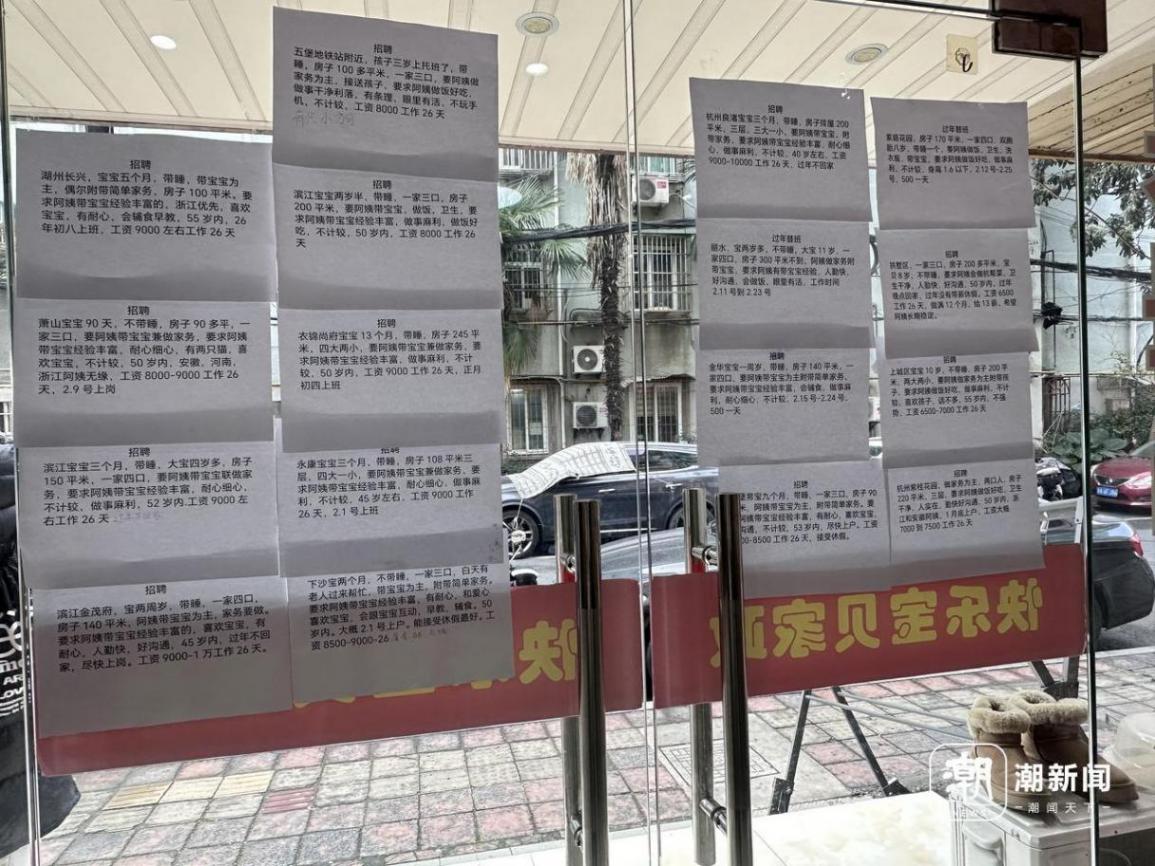 招聘
五堡地铁站附近，孩子三岁上托班了，带
睡，房子 100 多平米，一家三口，要阿姨做
家务为主，接送孩子，要求阿姨做饭好吃，
做事干净利落，有条理，眼里有活，不玩手
机，不计较，工资 8000 工作 26 天
招聘
湖州长兴，宝宝五个月，带睡，带宝宝为
主，偶尔附带简单家务，房子 100 平米。要
求阿姨带宝宝经验丰富的，浙江优先，喜欢
宝宝，有耐心，会辅食早教，55 岁内，26
年初八上班，工资 9000 左右工作 26 天
招聘
滨江宝宝两岁半，带睡，一家三口，房子
200 平米，要阿姨带宝宝，做饭，卫生，要
求阿姨带宝宝经验丰富，做事麻利，做饭好
吃，不计较，50 岁内，工资 8000 工作 26
天
招聘
萧山宝宝 90 天，不带睡，房子 90 多平，一
家三口，要阿姨带宝宝兼做家务，要求阿姨
带宝宝经验丰富，耐心细心，有两只猫，喜
欢宝宝，不计较，50 岁内，安徽，河南，
浙江阿姨无缘，工资 8000-9000 工作 26
天，2.9 号上岗
招聘
衣锦尚府宝宝 13 个月，带睡，房子 245 平
米，四大两小，要阿姨带宝宝兼做家务，要
求阿姨带宝宝经验丰富，做事麻利，不计
较，50 岁内，工资 9000 工作 26 天，正月
初四上班
招聘
滨江宝宝三个月，带睡，大宝四岁多，房子
150 平米，一家四口，要阿姨带宝宝联做家
务，要求阿姨带宝宝经验丰富，耐心细心，
不计较，做事麻利，52 岁内.工资 9000 左
右工作 26 天
招聘
永康宝宝三个月，带睡，房子 108 平米三
层，四大一小，要阿姨带宝宝兼做家务，要
求阿姨带宝宝经验丰富，耐心细心，做事麻
利，不计较，45 岁左右，工资 9000 工作
26 天，2.1 号上班
招聘
滨江金茂府，宝两周岁，带睡，一家四口，
房子 140 平米，阿姨带宝宝为主，家务要做。
要求阿姨带宝宝经验丰富的，喜欢宝宝，有
耐心，人勤快，好沟通，45 岁内，过年不回
家，尽快上岗。工资 9000-1 万工作 26 天。
下沙宝两个月，不带睡，一家三口，白天有
老人过来帮忙，带宝宝为主，附带简单家务。
要求阿姨带宝宝经验丰富，有耐心，和爱心
喜欢宝宝，会跟宝宝互动，早教，辅食。50
岁内。大概 2.1 号上户。能接受休假最好。工
资 8500-9000-26
招聘
杭州良渚宝宝三个月，带睡，房子排屋 200
平米，三层，三大一小，要阿姨带宝宝，附
带家务，要求阿姨带宝宝经验丰富，耐心细
心，做事麻利，不计较，40 岁左右，工资
9000-10000 工作 26 天，过年不回家
过年替班
紫庭花园，房子 170 平米，一家四口，双胞
胎八岁，带睡一个，要阿姨做饭，卫生，洗
衣服，带宝宝，要求阿姨做饭好吃，做事麻
利，不计较，身高 1.6 以下，2.12 号-2.25
号，500 一天
过年替班
丽水，宝两岁多，不带睡，大宝 11 岁，一
家四口，房子 300 平米不到，阿姨做家务附
带宝宝，要求阿姨有带宝宝经验，人勤快，
好沟通，会做饭，眼里有活，工作时间
2.11 号到 2.23 号
招聘
拱墅区，一家三口，房子 200 多平米，宝
贝 8 岁，不带睡，要求阿姨会做杭帮菜，卫
生干净，人勤快，好沟通，50 岁内，过年
晚点回家，过年没有带薪休假，工资 6500
工作 26 天，做满 12 个月，给 13 薪，希望
阿姨长期稳定。
招聘
金华宝宝一周岁，带睡，房子 140 平米，一
家四口，要阿姨带宝宝为主附带简单家务，
要求阿姨带宝宝经验丰富，会辅食，做事麻
利，耐心细心，不计较，2.15 号-2.24 号，
500 一天
招聘
上城区宝宝 10 岁，不带睡，房子 200 平
米，两大两小，要阿姨做家务为主附带孩
子，要求阿姨做饭好吃，做事麻利，不计
较，喜欢孩子，话不多，55 岁内，不强
势，工资 6500-7000 工作 26 天
招聘
宝九个月，带睡，一家三口，房子 90
米，阿姨带宝宝为主，附带简单家务。要
阿姨带宝宝经验丰富，有耐心，喜欢宝宝，
沟通，不计较，53 岁内，尽快上户。工资
00-8500 工作 26 天，接受休假。
招聘
杭州紫桂花园，做家务为主，两口人，房子
220 平米，三层，要求阿姨做饭好吃，卫生
干净，人实在，勤快好沟通，50 岁内，浙
江和安徽阿姨，1 月底上户，工资大概
7000 到 7500 工作 26 天
快乐宝贝家政
潮新闻
潮闻天下